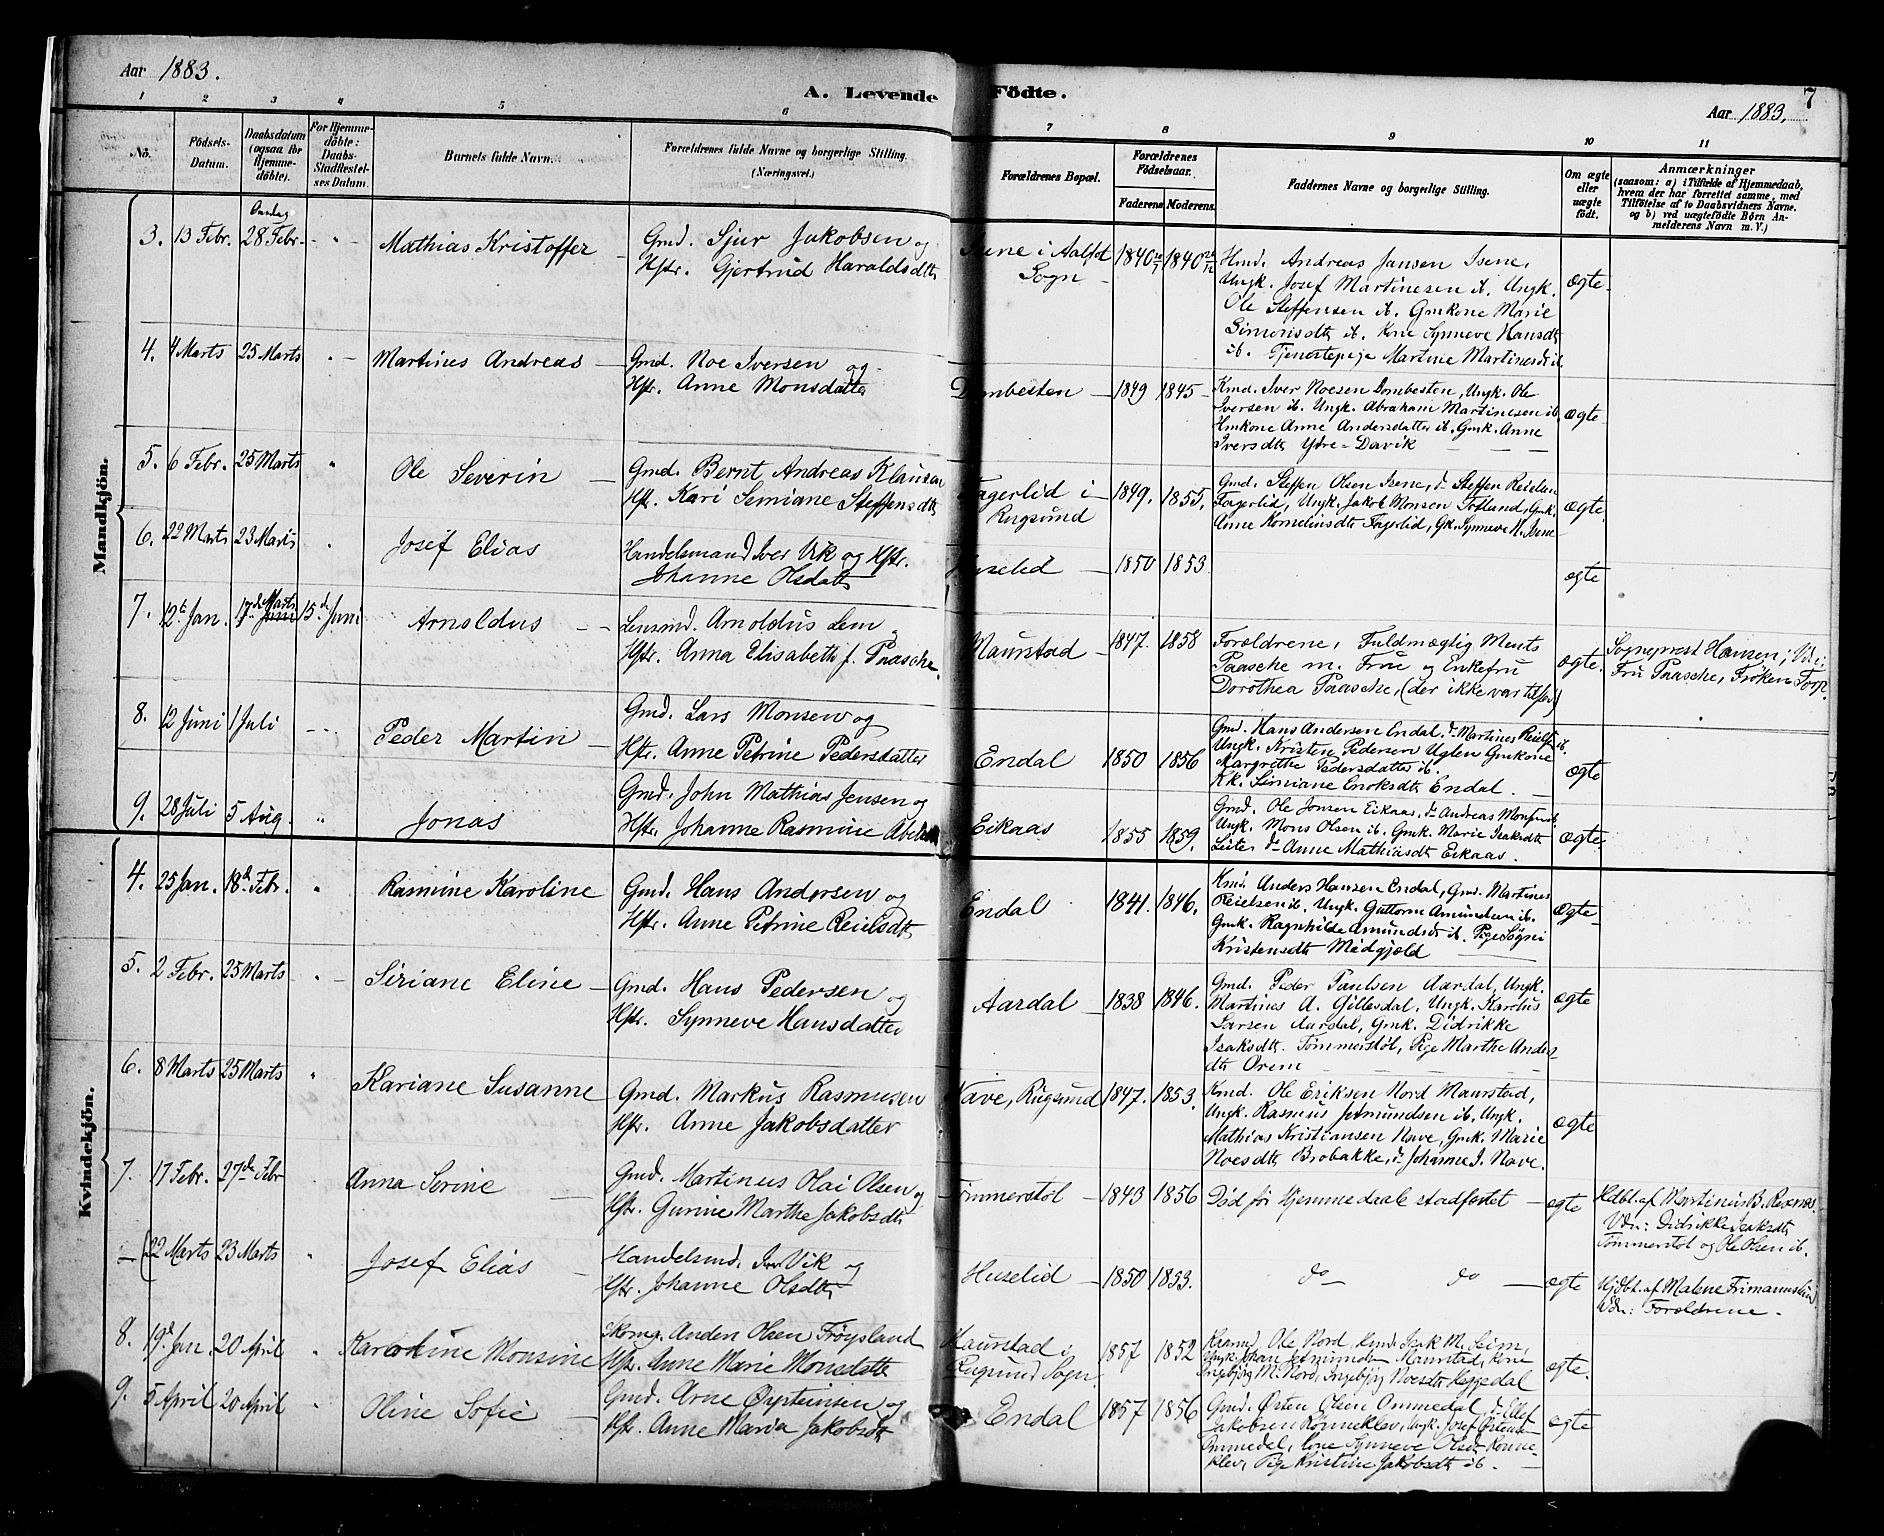 Aar 1883.
A. Levende Födte.
7
Aar 1883.
1 2 3 4 5 6 7 8 9 10 11
No.
Födsels-Datum.
Daabsdatum (ogsaa for Hjemme-döbte).
For Hjemme-döbte: Daabs-Stadfæstel-ses Datum.
Barnets fulde Navn.
Forældrenes fulde Navne og borgerlige Stilling.
(Næringsvei.)
Forældrenes Bopæl.
Forældrenes Födselsaar.
Faderens Moderens.
Faddernes Navne og borgerlige Stilling.
Om ægte eller uægte födt.
Anmærkninger
(saasom: a) i Tilfælde af Hjemmedaab, hvem der har forrettet samme, med Tilföielse af to Daabsvidners Navne. og b) ved uægtefödte Börn Anmelderens Navn m. V.)
Mandkjön.
3. 13 Febr. Onsdag 28 Febr. - " - Mathias Kristoffer
Gmd. Sjur Jakobsen og
Hstr. Gjertrud Haraldsdtr
Isene i Aalfot
Sogn
1840 1840
Hmd. Andreas Jansen Isene,
Ungk. Josef Martinesen ib. Ungk.
Ole Steffensen ib. Gmkone Marie
Simonsdtr ib. Kone Synneve Hansdtr
ib. Tjenestepige Martine Martinesdt ib.
ægte
4. 4 Marts 25 Marts " Martines Andreas
Gmd. Noe Iversen og
Hstr. Anne Monsdatter
Dombesten 1849 1845
Kmd. Iver Noesen Dombesten, Ungk. Ole
Iversen ib. Ungk. Abraham Martinesen ib.
Hmkone Anne Andersdatter ib. Gmk. Anne
Iversdtr Ytre-Davik
ægte
5. 6 Febr. 25 Marts " Ole Severin
Gmd. Bernt Andreas Klausen
Hst. Kari Semiane Steffensdtr
Fagerlid i
Rugsund
1849. 1855.
Gmd. Steffen Olsen Isene, do Steffen Reielsen
Fagerlid, Ungk. Jakob Monsen Totland, Gmk.
Anne Korneliusdtr Fagerlid, Gk. Synneve M. Isene
ægte
6. 22 Marts 23 Marts " Josef Elias
Handelsmand Iver Vik og Hstr.
Johanne Olsdatter
Huselid 1850 1853.
ægte
7. 12te Jan. 17de Marts Juni 15de Juni Arnoldus
Lensmd. Arnoldus Lem og
Hstr. Anna Elisabeth f. Paasche
Maurstad 1847. 1858
Forældrene, Fuldmægtig Ments
Paasche m. Frue og Enkefru
Dorothea Paasche, (der ikke var tilsted)
ægte.
Sogneprest Hansen; Vdr:
Fru Paasche, Frøken Torp.
8. 12 Juni 1 Juli Peder Martin
Gmd. Lars Monsen og
Hstr. Anne Petrine Pedersdatter
Endal 1850 1856
Gmd. Hans Andersen Endal, do Martines Reiels. ib.
Ungk. Kristen Pedersen Uglen Gmkone
Margrethe Pedersdatter ib.
Kk. Simiane Enoksdtr Endal.
ægte
9. 28 Juli 5 Aug. " Jonas
Gmd. John Mathias Jensen og
Hstr. Johanne Rasmine
Eikaas 1855 1859.
Gmd. Ole Jonsen Eikaas, do Andreas Monsen ib.
Ungk. Mons Olsen ib. Gmk. Marie Isaksdtr
do Anne Mathiasdtr Eikaas.
ægte
Kvindekjön.
4. 25 Jan. 18de Febr. " Rasmine Karoline
Gmd. Hans Andersen og
Hstr. Anne Petrine Reielsdtr
Endal 1841. 1846.
Kmd. Anders Hansen Endal, Gmd. Martines
Reielsen ib. Ungk. Guttorm Amundsen ib.
Gmk. Ragnhilde Amundsdt ib. Pige Søgni
Kristensdtr Midgjæld
Ægte
5. 2 Febr. 25 Marts " Siriane Eline
Gmd. Hans Pedersen og
Hstr. Synneve Hansdatter
Aardal 1838 1846.
Gmd. Peder Paulsen Aardal, Ungk.
Martines A. Gillesdal, Ungk. Karelus
Larsen Aardal, Gmk. Didrikke
Isaksdtr. Tømmerstøl, Pige Marthe Anders
dtr Orem
ægte
6. 8 Marts 25 Marts " Kariane Susanne
Gmd. Markus Rasmusen
Hstr. Anne Jakobsdatter
Nave, Rugsund 1847. 1853.
Kmd. Ole Eriksen Nord Maurstad,
Ungk. Rasmus Jetmundsen ib. Ungk.
Mathias Kristiansen Nave, Gmk. Marie
Noesdtr Brobakke, do Johanne J. Nave.
ægte
7. 17 Febr. 27de Febr Anna Sorine
Gmd. Martinus Olai Olsen og
Hstr. Gurine Marthe Jakobsdtr
Tømmerstøl 1843 1856 Død før Hjemmedaab stadfæstet ægte
Hdbt. af Martinus B. Revnes.
Vdn: Didrikke Isaksdtr
Tømmerstøl og Ole Olsen ib.
(22 Marts 23 Marts " Josef Elias
Handelsmd. Iver Vik og
Hstr. Johanne Olsdtr
Huselid 1850 1853. do do ægte
Hjdbt. af Malene Frimannslid
Vdn: Forældrene.
8. 19de Jan. 20 April " Karoline Monsine
Skomg. Anders Olsen Frøysland
Hstr. Anne Marie Monsdatter
Maurstad i
Rugsund Sogn.
1857 1852
Kaarmd. Ole Nord, Gmd. Isak M. Seim,
Ungk. Johan Jetmundsen Maurstad, Kone
Ingebjørg M. Nord, Ingebjørg Noesdtr Heggedal
ægte.
9. 5 April 20 April " Oline Sofie
Gmd. Arne Øysteinsen og
Hstr. Anne Maria Jakobsdtr
Endal 1857 1856
Gmd. Østen Olsen Ommedal, do Ellef
Jakobsen Rønneklev, Ungk. Josef Østensen
Ommedal, Kone Synneve Olsdtr Rønne-
klev, Pige Kristine Jakobsdtr ib.
ægte